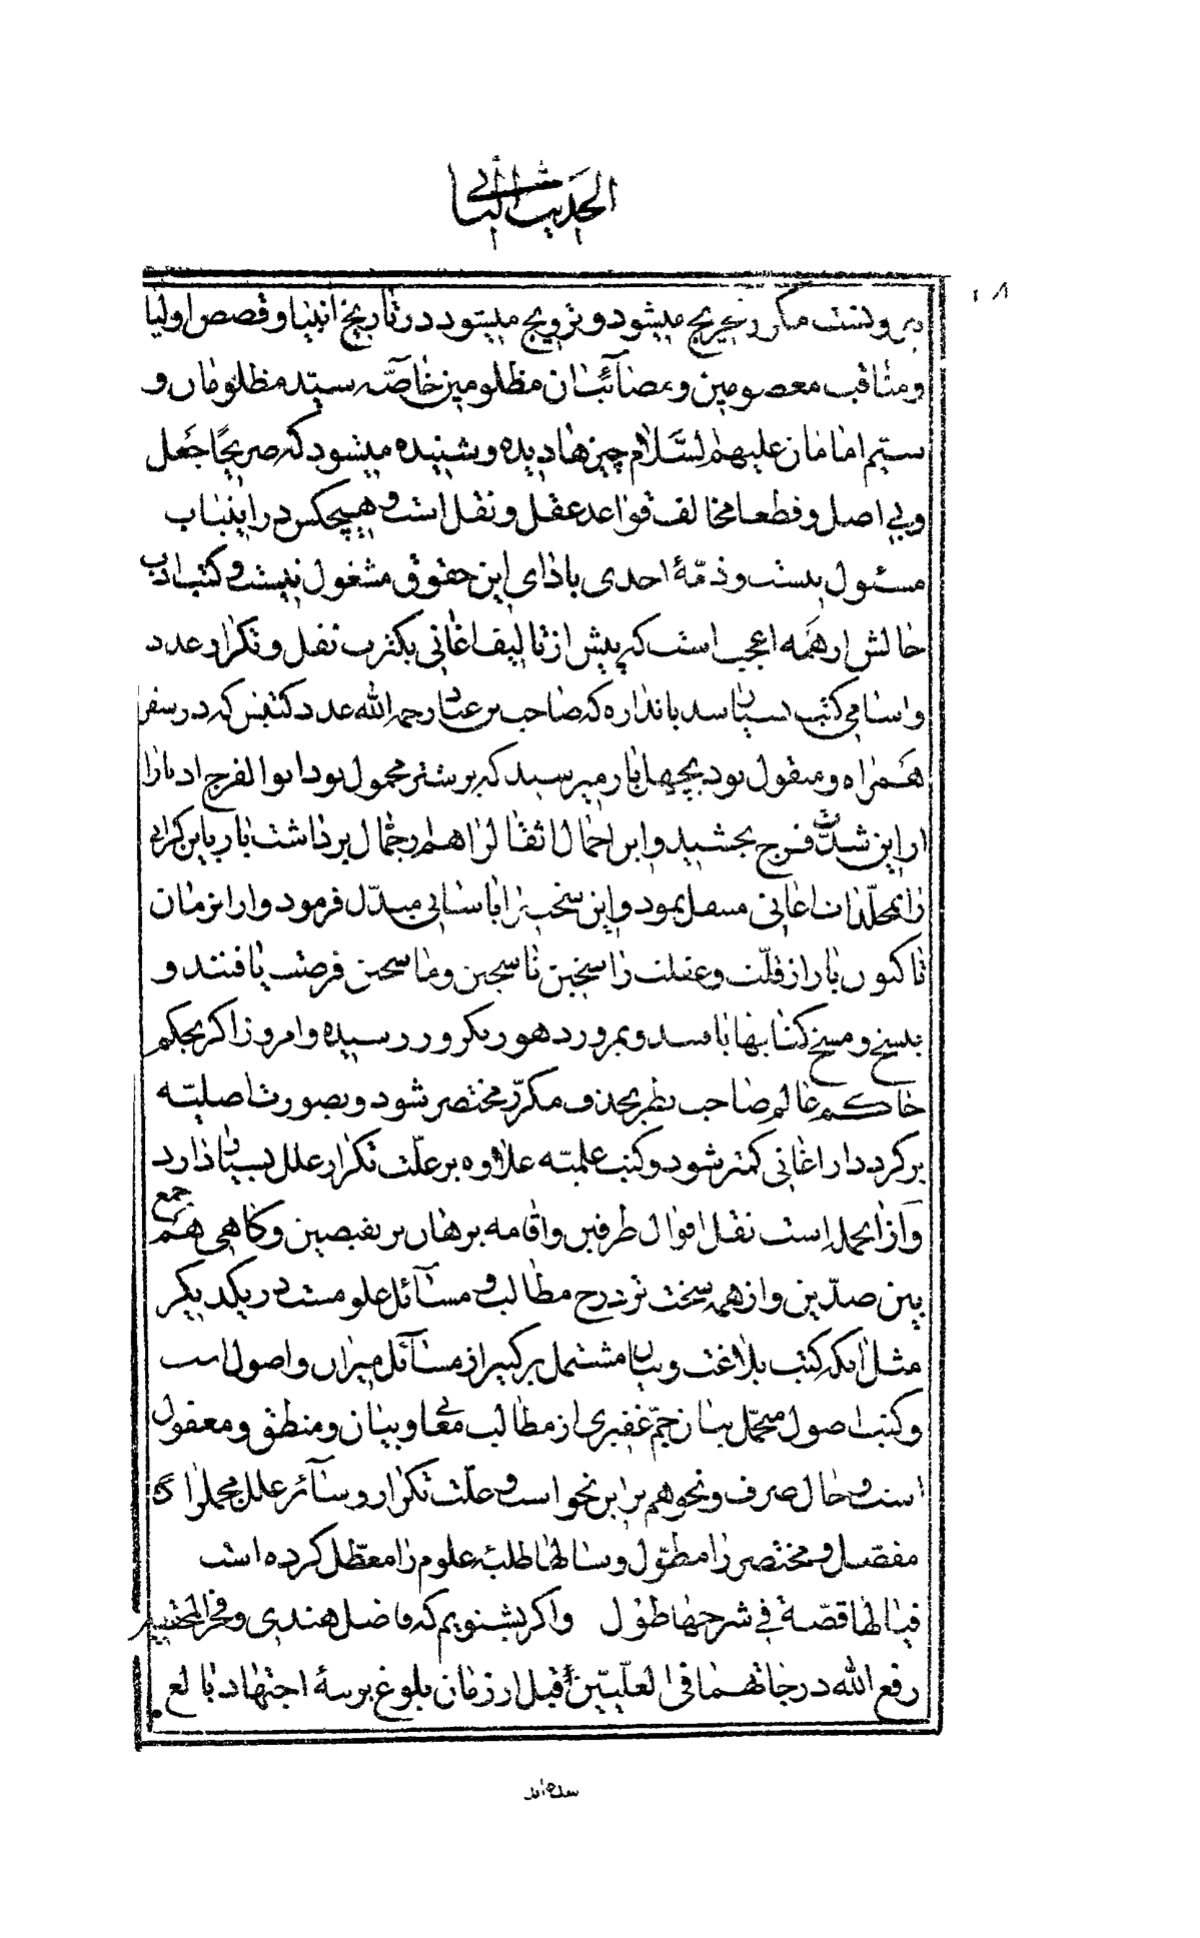 الحدیث الثانی
۱۰۸
میشود و ترویج میشود در تاریخ انبیا و قصص اولیا
و مناقب معصومین و مصائب ان مظلومین خاصّه سیّد مظلومان و
ستیم امامان علیهم السّلام چیزها دیده و شنیده میشود که صریحًا جعل
و بی اصل و قطعا مخالف قواعد عقل و نقل است و هیچکس در اینباب
مسئول نیست و ذمّهٔ احدی باذای این حقوق مشغول نیست و کتب ادب
حالش از همه اعجب است که پیش از تالیف اغانی بکثرت نقل و تکرار عدد
و اسامی کتب باندازه که صاحب بن عباد رحمه الله عدد کتبش که در سفر
همراه و منقول بود بچهل بار میرسید که بر شتر محمول بود ابوالفرج ادبا را
از این شدّت فرج بخشید و این احمال اثقال را هم از جمال برداشت بار باین گرانی
را بمجلّدات اغانی نمود و این سختی را باسانی مبدّل فرمود و از انزمان
تا کنون باز از قلّت و غفلت ناسخین و ماسخین فرصت یافتند و
بنسخ و مسخ کتابها و بمرور دهور بکرور رسیده و امروز اگر بحکم
حاکم عالم صاحب نظر بحذف مکرّر مختصر شود و بصورت اصلیّه
برگردد از اغانی کمتر شود و کتب علمیّه علاوه بر علّت تکرار علل بسیار دارد
و از انجمله است نقل اقوال طرفین و اقامه برهان بر نقیضین و گاهی هم جمع
بین ضدّین و از همه سخت تر درج مطالب و مسائل علومست در یکدیگر
مثل انکه کتب بلاغت و بیان مشتمل بر کثیر از مسائل میزان و اصول است
و کتب اصول جمّ غفیری از مطالب معانی و بیان و منطق و معقول
است و حال صرف و نحو هم برابر نحو است و علّت تکرار و سائر علل مجمل را
مفصّل و مختصر را مطوّل و سالها طلبهٔ علوم را معطّل کرده است
فیالها قصّة فی شرحها طول و اگر بشنویم که فاضل هندی و فخر المحقّقین
رفع الله درجاتهما فی العلّیّین قبل از زمان بلوغ برتبهٔ اجتهاد بالغ
شده اند